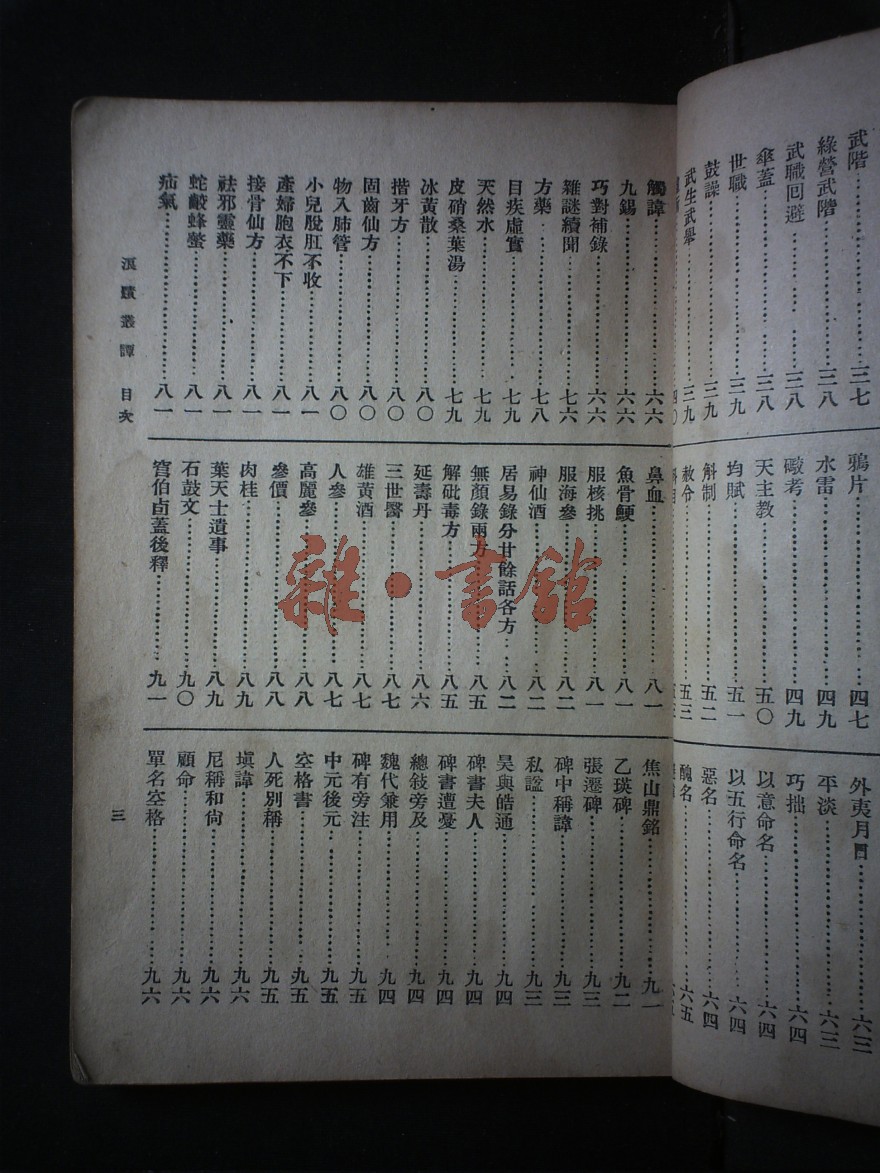 武階 三七
綠營武階 三八
武職回避 三八
傘蓋 三八
世職 三九
鼓譟 三九
武生武舉 三九
四〇
鴉片 四七
水雷 四九
礮考 四九
天主教 五〇
均賦 五一
斛制 五二
赦令 五三
外夷月日 六三
平淡 六三
巧拙 六四
以意命名 六四
以五行命名 六四
惡名 六四
醜名 六五
觸諱 六六
九錫 六六
巧對補錄 六六
雜謎續聞 七六
方藥 七八
目疾虛實 七九
天然水 七九
皮硝桑葉湯 七九
冰黃散 八〇
揩牙方 八〇
固齒仙方 八〇
物入肺管 八〇
小兒脫肛不收 八一
產婦胞衣不下 八一
接骨仙方 八一
祛邪靈藥 八一
蛇齩蜂螫 八一
疝氣 八一
鼻血 八一
魚骨鯁 八一
服核挑 八一
服海參 八二
神仙酒 八二
居易錄分甘餘話各方 八二
無顏錄兩方 八五
解砒毒方 八五
延壽丹 八六
三世醫 八七
雄黃酒 八七
人參 八七
高麗參 八八
參價 八八
肉桂 八九
葉天士遺事 八九
石鼓文 九〇
宮伯卣蓋後釋 九一
焦山鼎銘 九一
乙瑛碑 九二
張遷碑 九三
碑中稱諱 九三
私諡 九三
昊與皓通 九四
碑書夫人 九四
碑書遭憂 九四
總敍旁及 九四
魏代兼用 九四
碑有旁注 九四
中元後元 九五
空格書 九五
人死別稱 九五
塡諱 九六
尼稱和尙 九六
顧命 九六
單名空格 九六
浪蹟叢譚 目次
三
雜·書館